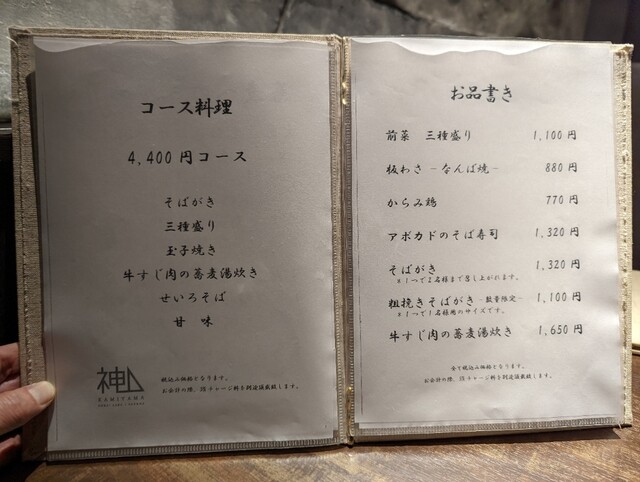 コース料理
4,400円コース
そばがき
三種盛り
玉子焼き
牛すじ肉の蕎麦湯炊き
せいろそば
甘味
神山
KAMIYAMA
税込み価格となります。
お会計の際、席チャージ料を別途頂戴致します。
お品書き
前菜 三種盛り 1,100円
板わさ -なんば焼- 880円
からみ鶏 770円
アボカドのそば寿司 1,320円
そばがき 1,320円
※1つで2名様まで召し上がれます。
粗挽きそばがき -数量限定- 1,100円
※1つで1名様用のサイズです。
牛すじ肉の蕎麦湯炊き 1,650円
全て税込み価格となります。
お会計の際、席チャージ料を別途頂戴致します。